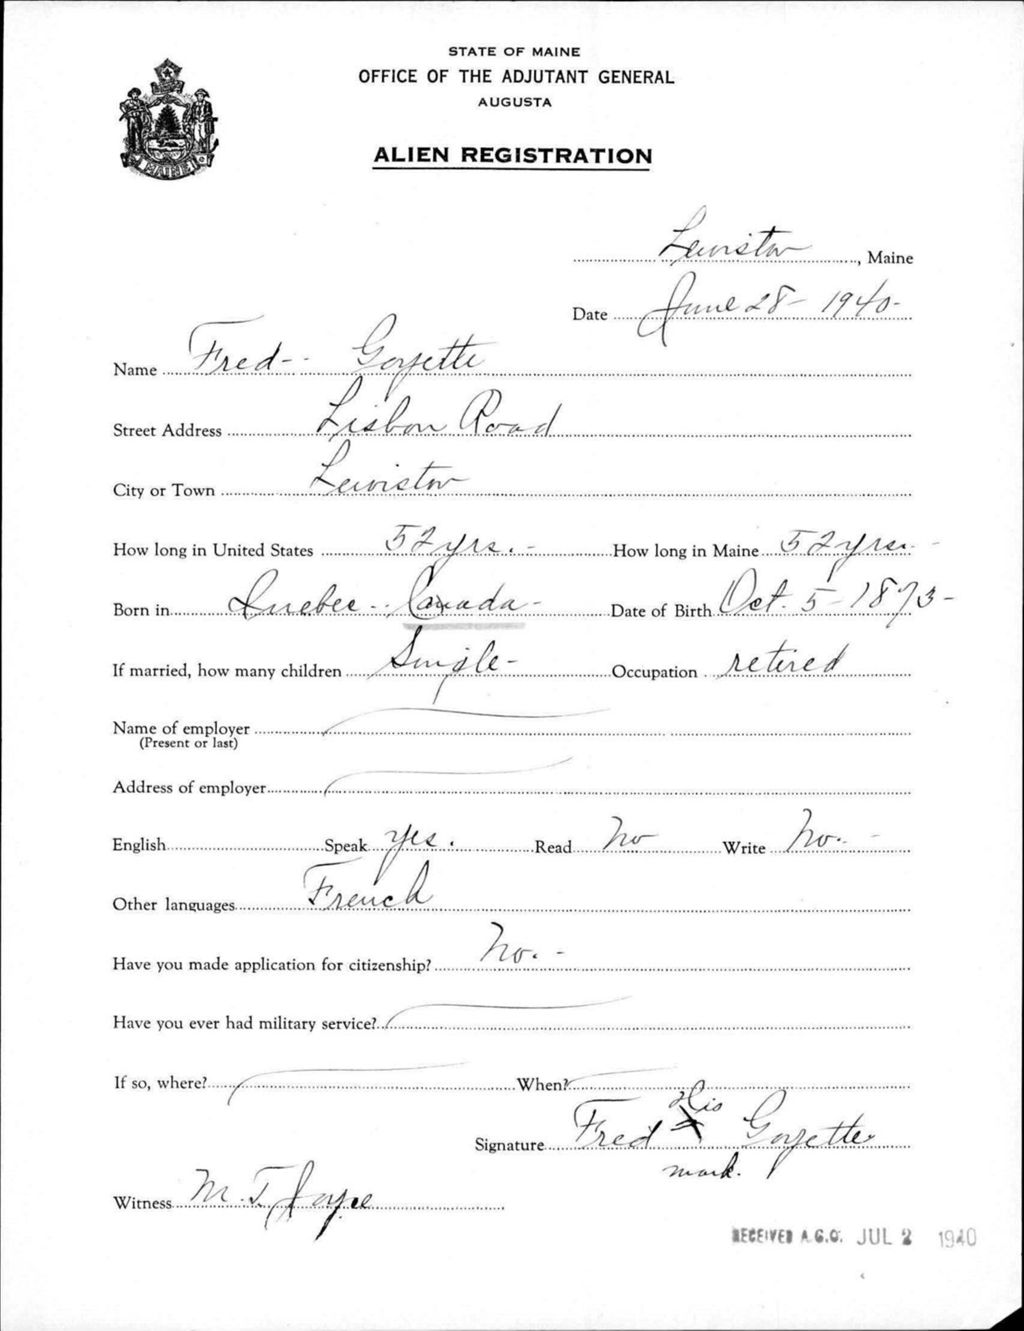 STATE OF MAINE
OFFICE OF THE ADJUTANT GENERAL
AUGUSTA
ALIEN REGISTRATION
MAINE
Lewiston, Maine
Date June 28 - 1940 -
Name Fred - - Goyette
Street Address Lisbon Road
City or Town Lewiston
How long in United States 52 yrs. - How long in Maine 52 yrs. -
Born in Quebec - Canada - Date of Birth Oct. 5 - 1873 -
If married, how many children Single - Occupation retired
Name of employer
(Present or last)
Address of employer
English Speak Yes. Read No Write No. -
Other languages French
Have you made application for citizenship? No. -
Have you ever had military service?
If so, where? When?
His
Signature Fred X Goyette
mark.
Witness M. T. Joyce
RECEIVED A.G.O. JUL 2 1940